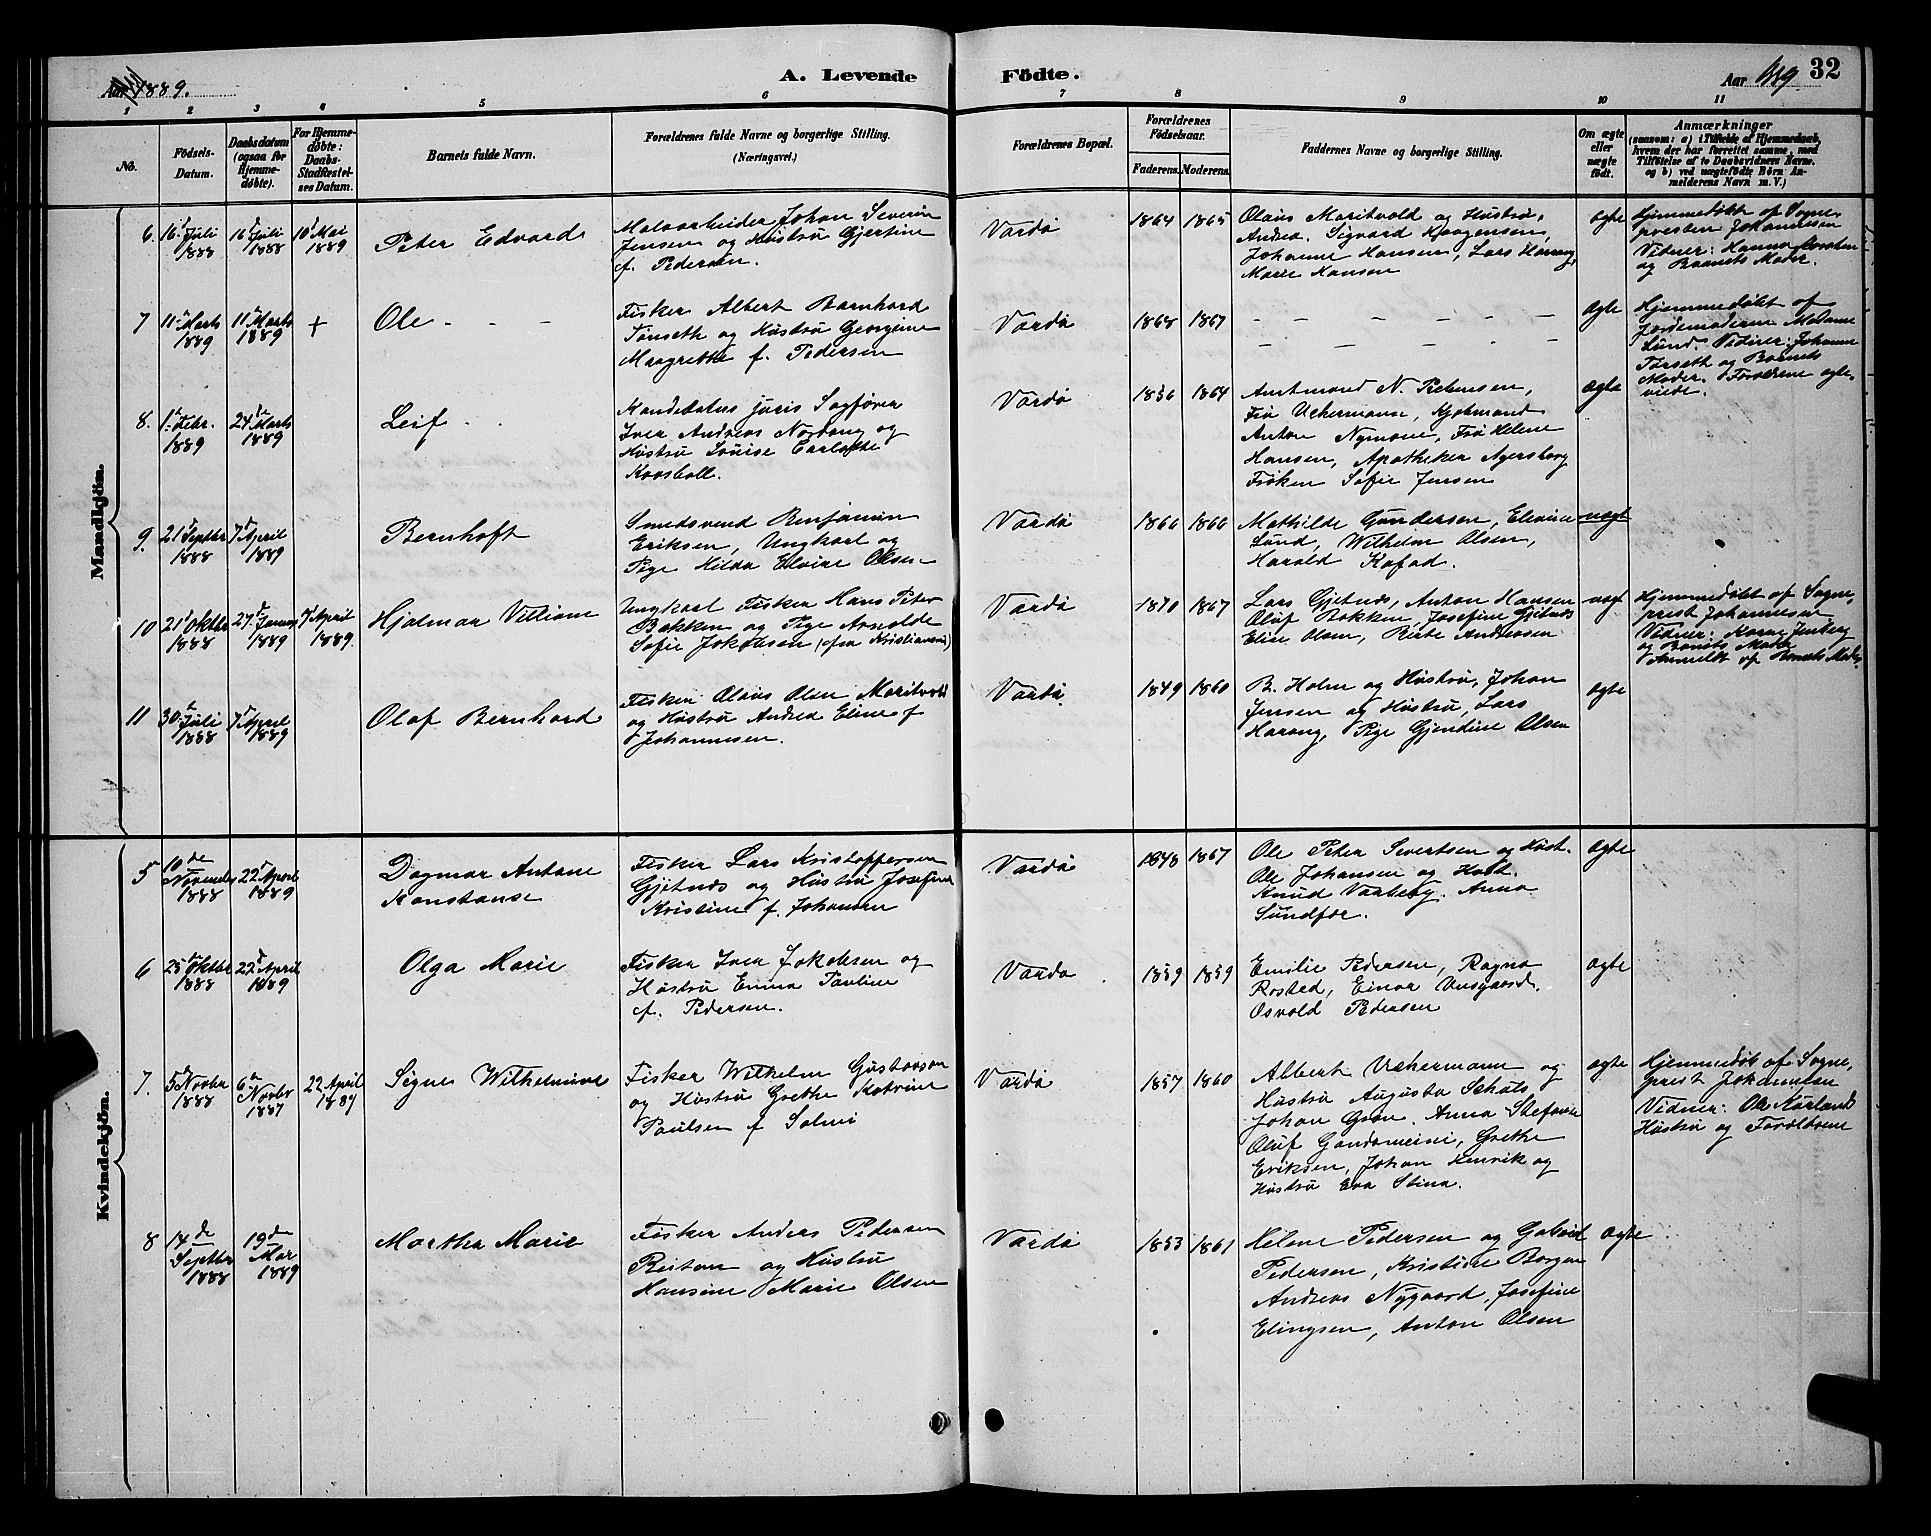 1889.
A. Levende
Födte.
Aar 1889
32
1 2 3 4 5 6 7 8 9 10 11
No.
Födsels-Datum.
Daabsdatum (ogsaa for Hjemme-døbte).
For Hjemme-døbte: Daabs-Stadfæstel-ses Datum.
Barnets fulde Navn.
Forældrenes fulde Navne og borgerlige Stilling.
(Næringsvei.)
Forældrenes Bopæl.
Forældrenes Födselsaar.
Faderens. Moderens.
Faddernes Navne og borgerlige Stilling.
Om ægte eller uægte født.
Anmærkninger
(saasom: a) i Tilfælde af Hjemmedaab,
hvem der har forrettet samme, med
Tilföielse af to Daabsvidners Navne.
og b) ved uægtefödte Börn An-
melderens Navn m. V.)
Mandkjön.
6. 16 Juli 1888 16 Juli 1888 10 Mai 1889
Peter Edvard
Johan Severin
Jensen og Hustru Gjertine
f. Pedersen.
Vardö 1864 1865
Olaus Maritvold og Hustru,
Andrea. Sigvard
Johanne Hansen, Lars Harang,
Marie Hansen
ægte
Hjemmedøbt af Sogne-
presten Johannesen
Vidner: Hanna
og Barnets Moder.
7 11 Marts 1889 11 Marts 1889 +
Ole - - -
Fisker Albert Barnhard
Tønseth og Hustru Georgine
Margrethe f. Pedersen
Vardö 1868 1867
- - - - - -
ægte
Hjemmedøbt af
Jordemoderen Madame
Lund. Vidner: Johanne
Tørseth og Barnets
Moder. Forældrene ægte-
viede.
8. 1 Febr. 1889 24 Marts 1889
Leif - -
Kandidatus juris Sagfører
Iver Andreas Nordang og
Hustru Louise Carlotte
Vardö 1856 1864
Amtmand N. Prebensen,
Fru Uchermann, Kjøbmand
Anton Nymone, Fru Helene
Hansen, Apotheker Agersborg
Frøken Sofie Jensen
ægte
9. 21 Septbr 1888 7 April 1889
Bernhoft
Smedsvend Benjamin
Eriksen, Ungkarl og
Pige Hilda Elvine Olsen
Vardö 1866 1866
Mathilde Gundersen, Elevine
Lund, Wilhelm Olsen,
Harald Kofod.
uægt
10 21 Oktbr 1888 27 Januar 1889 7 April 1889.
Hjalmar Villiam
Ungkarl Fisker Hans Peter
Bakken og Pige Arnolde
Sofie Jakobsen (fra Kristiansund)
Vardö 1870 1867
Lars Gjetnæs, Anton Hansen
Oluf Bokken, Josefine Gjetnæs
Elise Olsen, Berte Andersen
uægt
Hjemmedøbt af Sogne-
prest Johannesen
Vidner: Karen
og Barnets Moder
Anmeldt af Barnets Moder
11 30 Juli 1888 7 April 1889
Olaf Bernhard
Fisker Olaus Olsen Maritvold
og Hustru Andrea Eline f
Johannesen.
Vardö. 1849 1860
B. Holm og Hustru, Johan
Jensen og Hustru, Lars
Harang, Pige Gjendine Olsen
ægte
Kvindekjön.
5 10de November 1888 22 April 1889
Dagmar Antane
Konstanse
Fisker Lars Kristoffersen
Gjetnæs og Hustru Josefine
Kristine f. Johansen
Vardö 1848 1867
Ole Peter Sivertsen og Hust.
Ole Johansen og Hust.
Knud Varberg. Anna
Sundfær.
ægte
6 25 Oktbr 1888 22 April 1889
Olga Marie
Fisker Iver Jakobsen og
Hustru Emma Pauline
f. Pedersen.
Vardö 1859 1859
Emilie Pedersen, Ragna
Rosted, Einar
Osvold Pedersen
ægte
7. 5 Novbr 1888 6 Novbr 1887 22 April 1889
Signe Wilhelmine
Fisker Wilhelm Gustavson
og Hustru Grethe Katrine
Paulsen f Salmi
Vardö 1857 1860
Albert Uchermann og
Hustru Augusta Schuls
Johan Gran. Anna Stefanie
Oluf Grethe
Eriksen, Johan Henrik og
Hustru Eva Stina.
ægte
Hjemmedøbt af Sogne-
prest Johannesen
Vidner: Ole
Hustru og Forældrene
8 14de Septbr 1888 19de Mai 1889
Martha Marie
Fisker Anders Pedersen
Reitan og Hustru
Hansine Marie Olsen
Vardö 1853 1861
Helene Pedersen og Gabriel
Pedersen, Kristine Borgen
Andreas Nygaard, Josefine
Elingsen, Anton Olsen
ægte